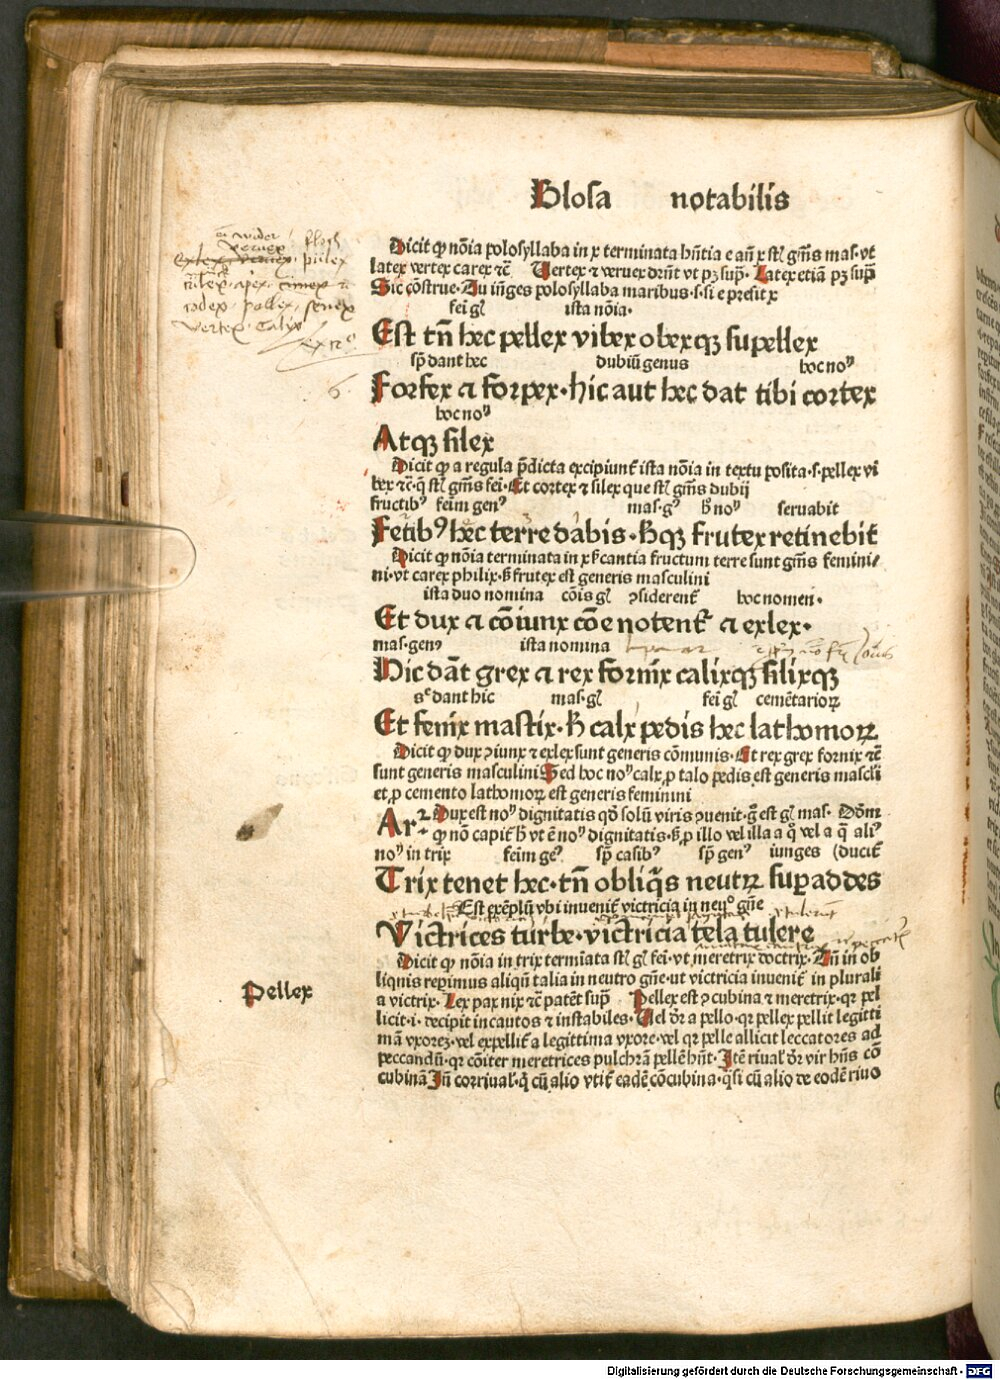 Glosa notabilis
Dicit ꝙ nōia polosyllaba in x terminata hn̄tia e an̄ x sūt gn̄is mas. vt
latex vertex carex ⁊c̄ Vertex ⁊ veruex dn̄t vt pꝫ sup̄. Latex etiā pꝫ sup̄
Sic cōstrue. Tu iūges polosyllaba maribus .s. si e presit x
fei gꝉ ista nōia.
Est tn̄ hec pellex vibex obexqꝫ supellex
sp̄ dant hec dubiū genus hoc noꝰ
Forfex ⁊ forpex. hic aut hec dat tibi cortex
hoc noꝰ
Atqꝫ silex
Dicit ꝙ a regula p̄dicta excipiunt̄ ista nōia in textu posita .s. pellex vi
bex ⁊c̄. q̄ sūt gn̄is fei. Et cortex ⁊ silex que sūt gn̄is dubij
fructibꝰ femi genꝰ mas. gꝰ hͦ noꝰ seruabit
Fetibꝰ hec terre dabis. hͦqꝫ frutex retinebit
Dicit ꝙ nōia terminata in x sīcantia fructum terre sunt gn̄is femini/
ni. vt carex philix. sꝫ frutex est generis masculini
ista duo nomina cōis gꝉ ꝯsiderent̄ hoc nomen.
Et dux ⁊ cōiunx cōe notent̄ ⁊ exlex.
mas. genꝰ ista nomina
Hic dāt grex ⁊ rex fornix calixqꝫ filixqꝫ
sͤ dant hic mas. gꝉ fei gꝉ cemētarioꝝ
Et fenix mastix. hͨ calx pedis hec lathomoꝝ
Dicit ꝙ dux ꝯiunx ⁊ exlex sunt generis cōmunis. Et rex grex fornix ⁊c̄
sunt generis masculini Sed hoc noꝰ calx ꝓ talo pedis est generis mascli
et ꝓ cemento lathomoꝝ est generis feminini
Arꝛ Dux est noꝰ dignitatis qd̄ solū viris ꝯuenit. g̊ est gꝉ mas. Dōm
ꝙ nō capit̄ hͨ vt ē noꝰ dignitatis. sꝫ ꝓ illo vel illa a q̊ vel a q̄ aliꝰ
noꝰ in trix femi geꝰ sp̄ casibꝰ sp̄ genꝰ iunges (ducit̄
Trix tenet hec. tn̄ obliq̄s neutꝝ sup̄addes
Est exēplū vbi inuenit̄ victricia in neuͦ gn̄e
Victrices turbe. victricia tela tulere
Dicit ꝙ nōia in trix termīata sūt gꝉ fei. vt meretrix doctrix. Tn̄ in ob
liquis repimus aliqn̄ talia in neutro gn̄e. ut victricia inuenit̄ in plurali
a victrix. Lex pax nix ⁊c̄ patēt sup̄ Pellex est ꝯcubina ⁊ meretrix. qꝛ pel
licit .i. decipit incautos ⁊ instabiles. Vel dr̄ a pello. qꝛ pellex pellit legitti
mā vxorē. vel expellit̄ a legittima vxore. vel qꝛ pelle allicit leccatores ad
peccandū. qꝛ cōiter meretrices pulchrā pellē hn̄t. Itē riual̄ dr̄ vir hn̄s cō
cubinā Jn̄ corriual̄. q̊ cū alio vtit̄ eadē cōcubina. q̄si cū alio de eodē riuo
Pellex
pulex
apex cimex
codex pollex senex
vertex calix
Digitalisierung gefördert durch die Deutsche Forschungsgemeinschaft - DFG